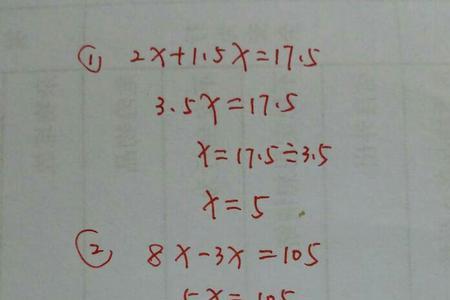 ① 2x+1.5x=17.5
3.5x=17.5
x=17.5÷3.5
x=5
② 8x-3x=105
5x=105